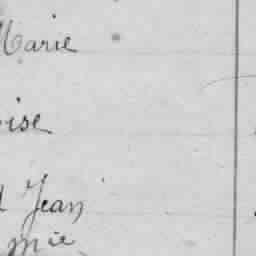 Marie
oise
d Jean
mie